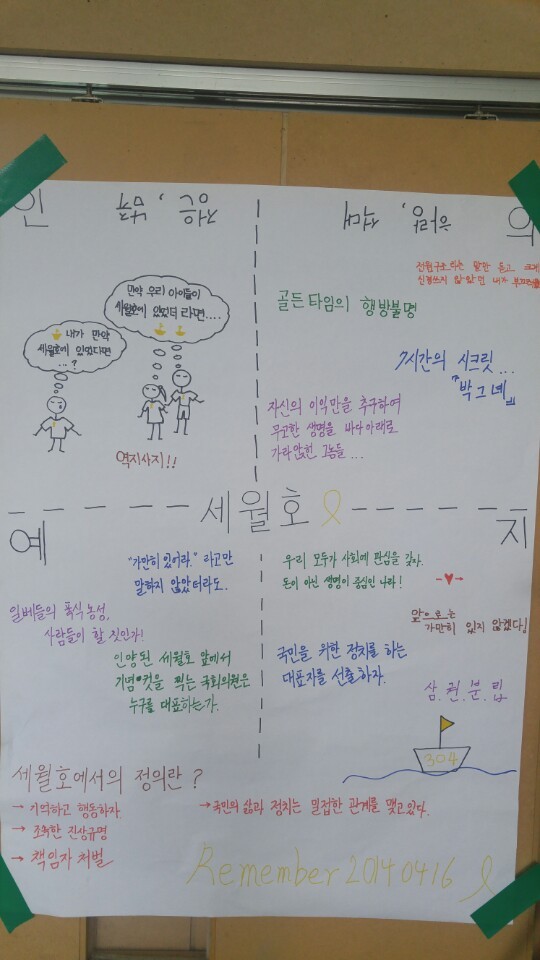 인
의
전원구조 라는 말만 듣고
신경쓰지 않았던 내가
만약 우리 아이들이
세월호에 있었더라면....
내가 만약
세월호에 있었다면
...?
역지사지!!
골든타임의 행방불명
7시간의 시크릿...
"박그네"
자신의 이익만을 추구하여
무고한 생명을 바다아래로
가라앉힌 그놈들...
세월호
예
지
"가만히 있어라." 라고만
말하지 않았더라도..
일베들의 폭식농성,
사람들이 할 짓인가!
인양된 세월호 앞에서
기념컷을 찍는 국회의원은
누구를 대표하는가.
우리 모두가 사회에 관심을 갖자.
돈이 아닌 생명이 중심인 나라!
앞으로는
가만히 있지 않겠다!
국민을 위한 정치를 하는
대표자를 선출하자.
삼.권.분.립
304
세월호에서의 정의란?
→ 기억하고 행동하자.
→ 조속한 진상규명
→ 책임자 처벌
→ 국민의 삶과 정치는 밀접한 관계를 맺고있다.
Remember 20140416